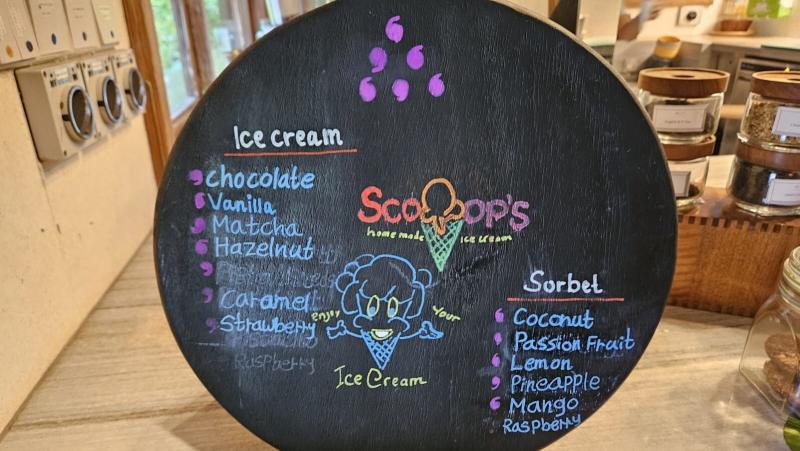 Ice cream
Chocolate
Vanilla
Matcha
Hazelnut
Caramel
Strawberry
Raspberry
Scoop's
home made ice cream
enjoy your
Ice Cream
Sorbet
Coconut
Passion Fruit
Lemon
Pineapple
Mango
Raspberry